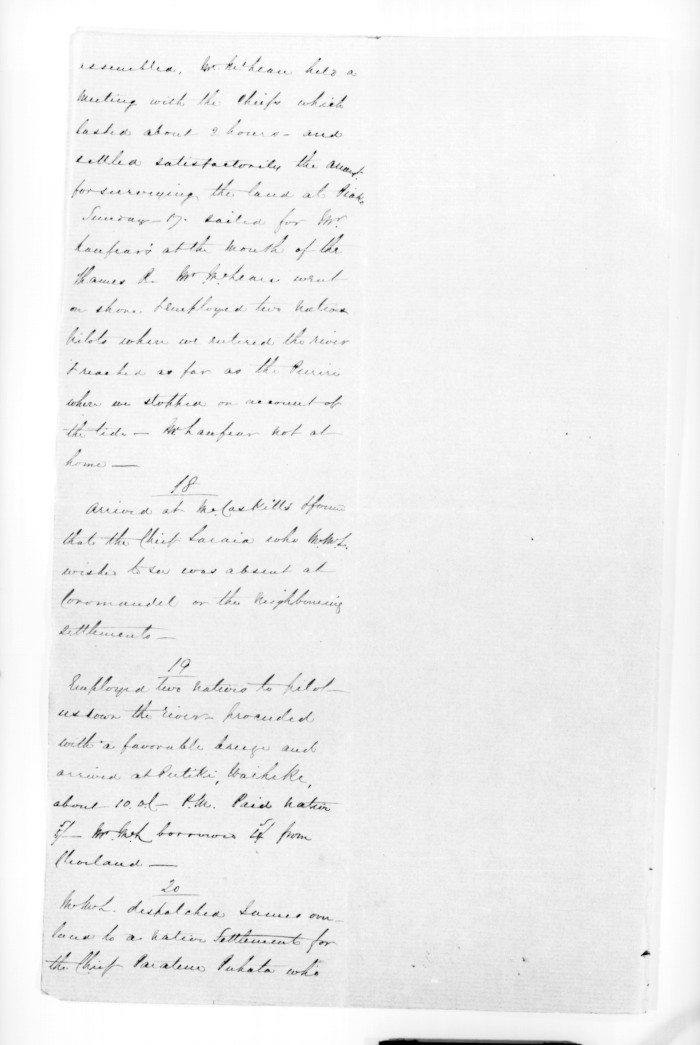 assembled. Mr McLean held a
Meeting with the Chiefs which
lasted about 2 hours - and
settled satisfactorily the amount
for surveying the land at Piako
Sunday - 17. sailed for Mr
Lanfear's at the Mouth of the
Thames R. Mr McLean went
on shore & employed two Native
Pilots when we entered the river
& reached as far as the Puriri
where we stopped on account of
the tide - Mr Lanfear not at
home -
18
Arrived at McCaskills & found
that the Chief Taraia who Mr McL.
wishes to see was absent at
Coromandel or the Neighbouring
settlements -
19
Employed two natives to pilot
us down the river - proceeded
with a favorable breeze and
arrived at Putiki, Waiheke,
about 10. o/- P.M. Paid Native
5/- Mr McL borrows 5/ from
20
Mr McL. dispatched James over
land to a native Settlement for
the Chief Paratene Puhata who